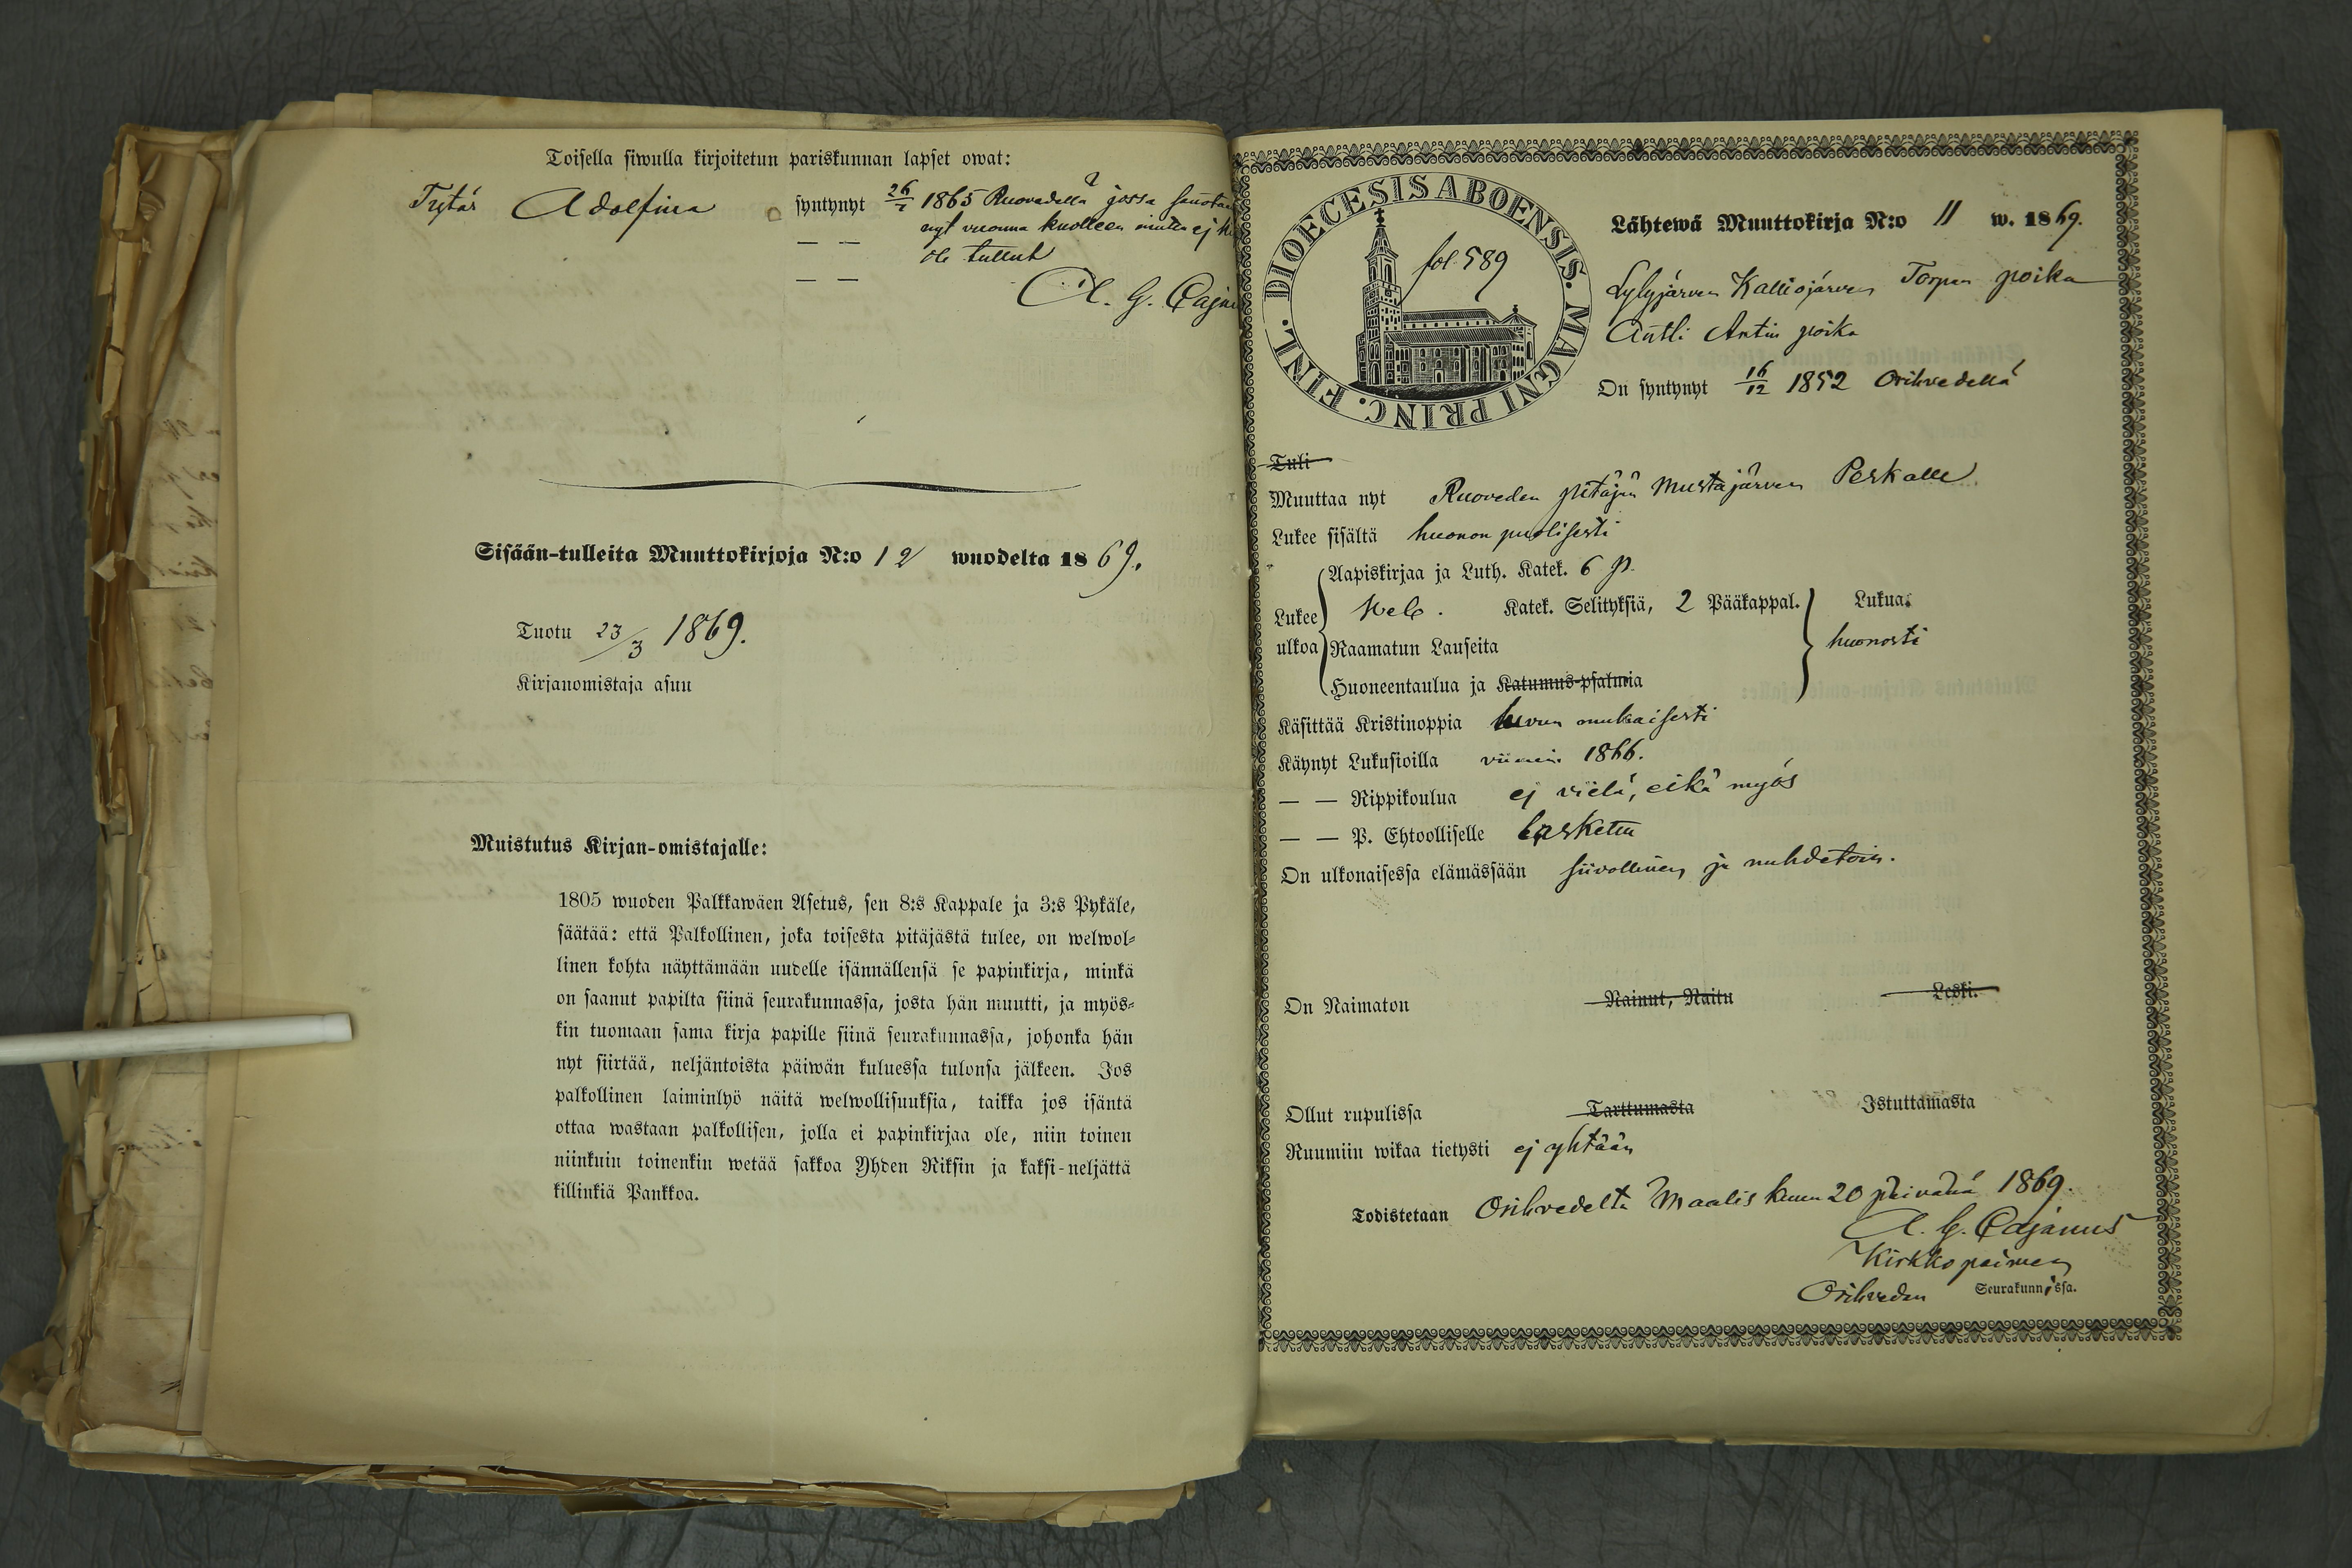 Toisella siwulla kirjoitetun pariskunnan lapset owat:
Tytär Adolfina syntynyt 26/7 1865 Ruovedellä jossa sanotaan
nyt vuonna kuolleen mutta ej
— — ole tullut
— — A. G. Cajan
Sisään-tulleita Muuttokirjoja N:o 12 wuodelta 1869.
Tuotu 23/3 1869.
Kirjanomistaja asuu
Muistutus Kirjan-omistajalle:
1805 wuoden Palkkawäen Asetus, sen 8:s Kappale ja 3:s Pykäle,
säätää: että Palkollinen, joka toisesta pitäjästä tulee, on welwol-
linen kohta näyttämään uudelle isännällensä se papinkirja, minkä
on saanut papilta siinä seurakunnassa, josta hän muutti, ja myös-
kin tuomaan sama kirja papille siinä seurakunnassa, johonka hän
nyt siirtää, neljäntoista päiwän kuluessa tulonsa jälkeen. Jos
palkollinen laiminlyö näitä welwollisuuksia, taikka jos isäntä
ottaa wastaan palkollisen, jolla ei papinkirjaa ole, niin toinen
niinkuin toinenkin wetää sakkoa Yhden Riksin ja kaksi-neljättä
killinkiä Pankkoa.
DIOECESIS ABOENSIS. MAGNI PRINC. FINL.
fol. 589
Lähtewä Muuttokirja N:o 11 w. 1869.
Lylyjärven Kalliojärven Torpan poika
Antti Antin poika
On syntynyt 16/12 1852 Orihvedellä
Tuli
Muuttaa nyt Ruoveden pitäjän Mustajärven Peskalle
Lukee sisältä huonon puolisesti
Lukee ulkoa
Aapiskirjaa ja Luth. Katek. 6 p.
Web. Katek. Selityksiä, 2 Pääkappal.
Raamatun Lauseita
Huoneentaulua ja Katumus-psalmia
Lukua.
huonosti
Käsittää Kristinoppia luvun mukaisesti
Käynyt Lukusioilla viimein 1866.
— — Rippikoulua ej vielä, eikä myös
— — P. Ehtoolliselle laskettu
On ulkonaisessa elämässään siivollinen ja nuhdetoin.
On Naimaton Nainut, Naitu Leski.
Ollut rupulissa Tarttumasta Istuttamasta
Ruumiin wikaa tietysti ej yhtään
Todistetaan Orihvedeltä Maaliskuun 20 päivänä 1869.
A. G. Cajanus
Kirkkopaimen
Orihveden Seurakunnissa.